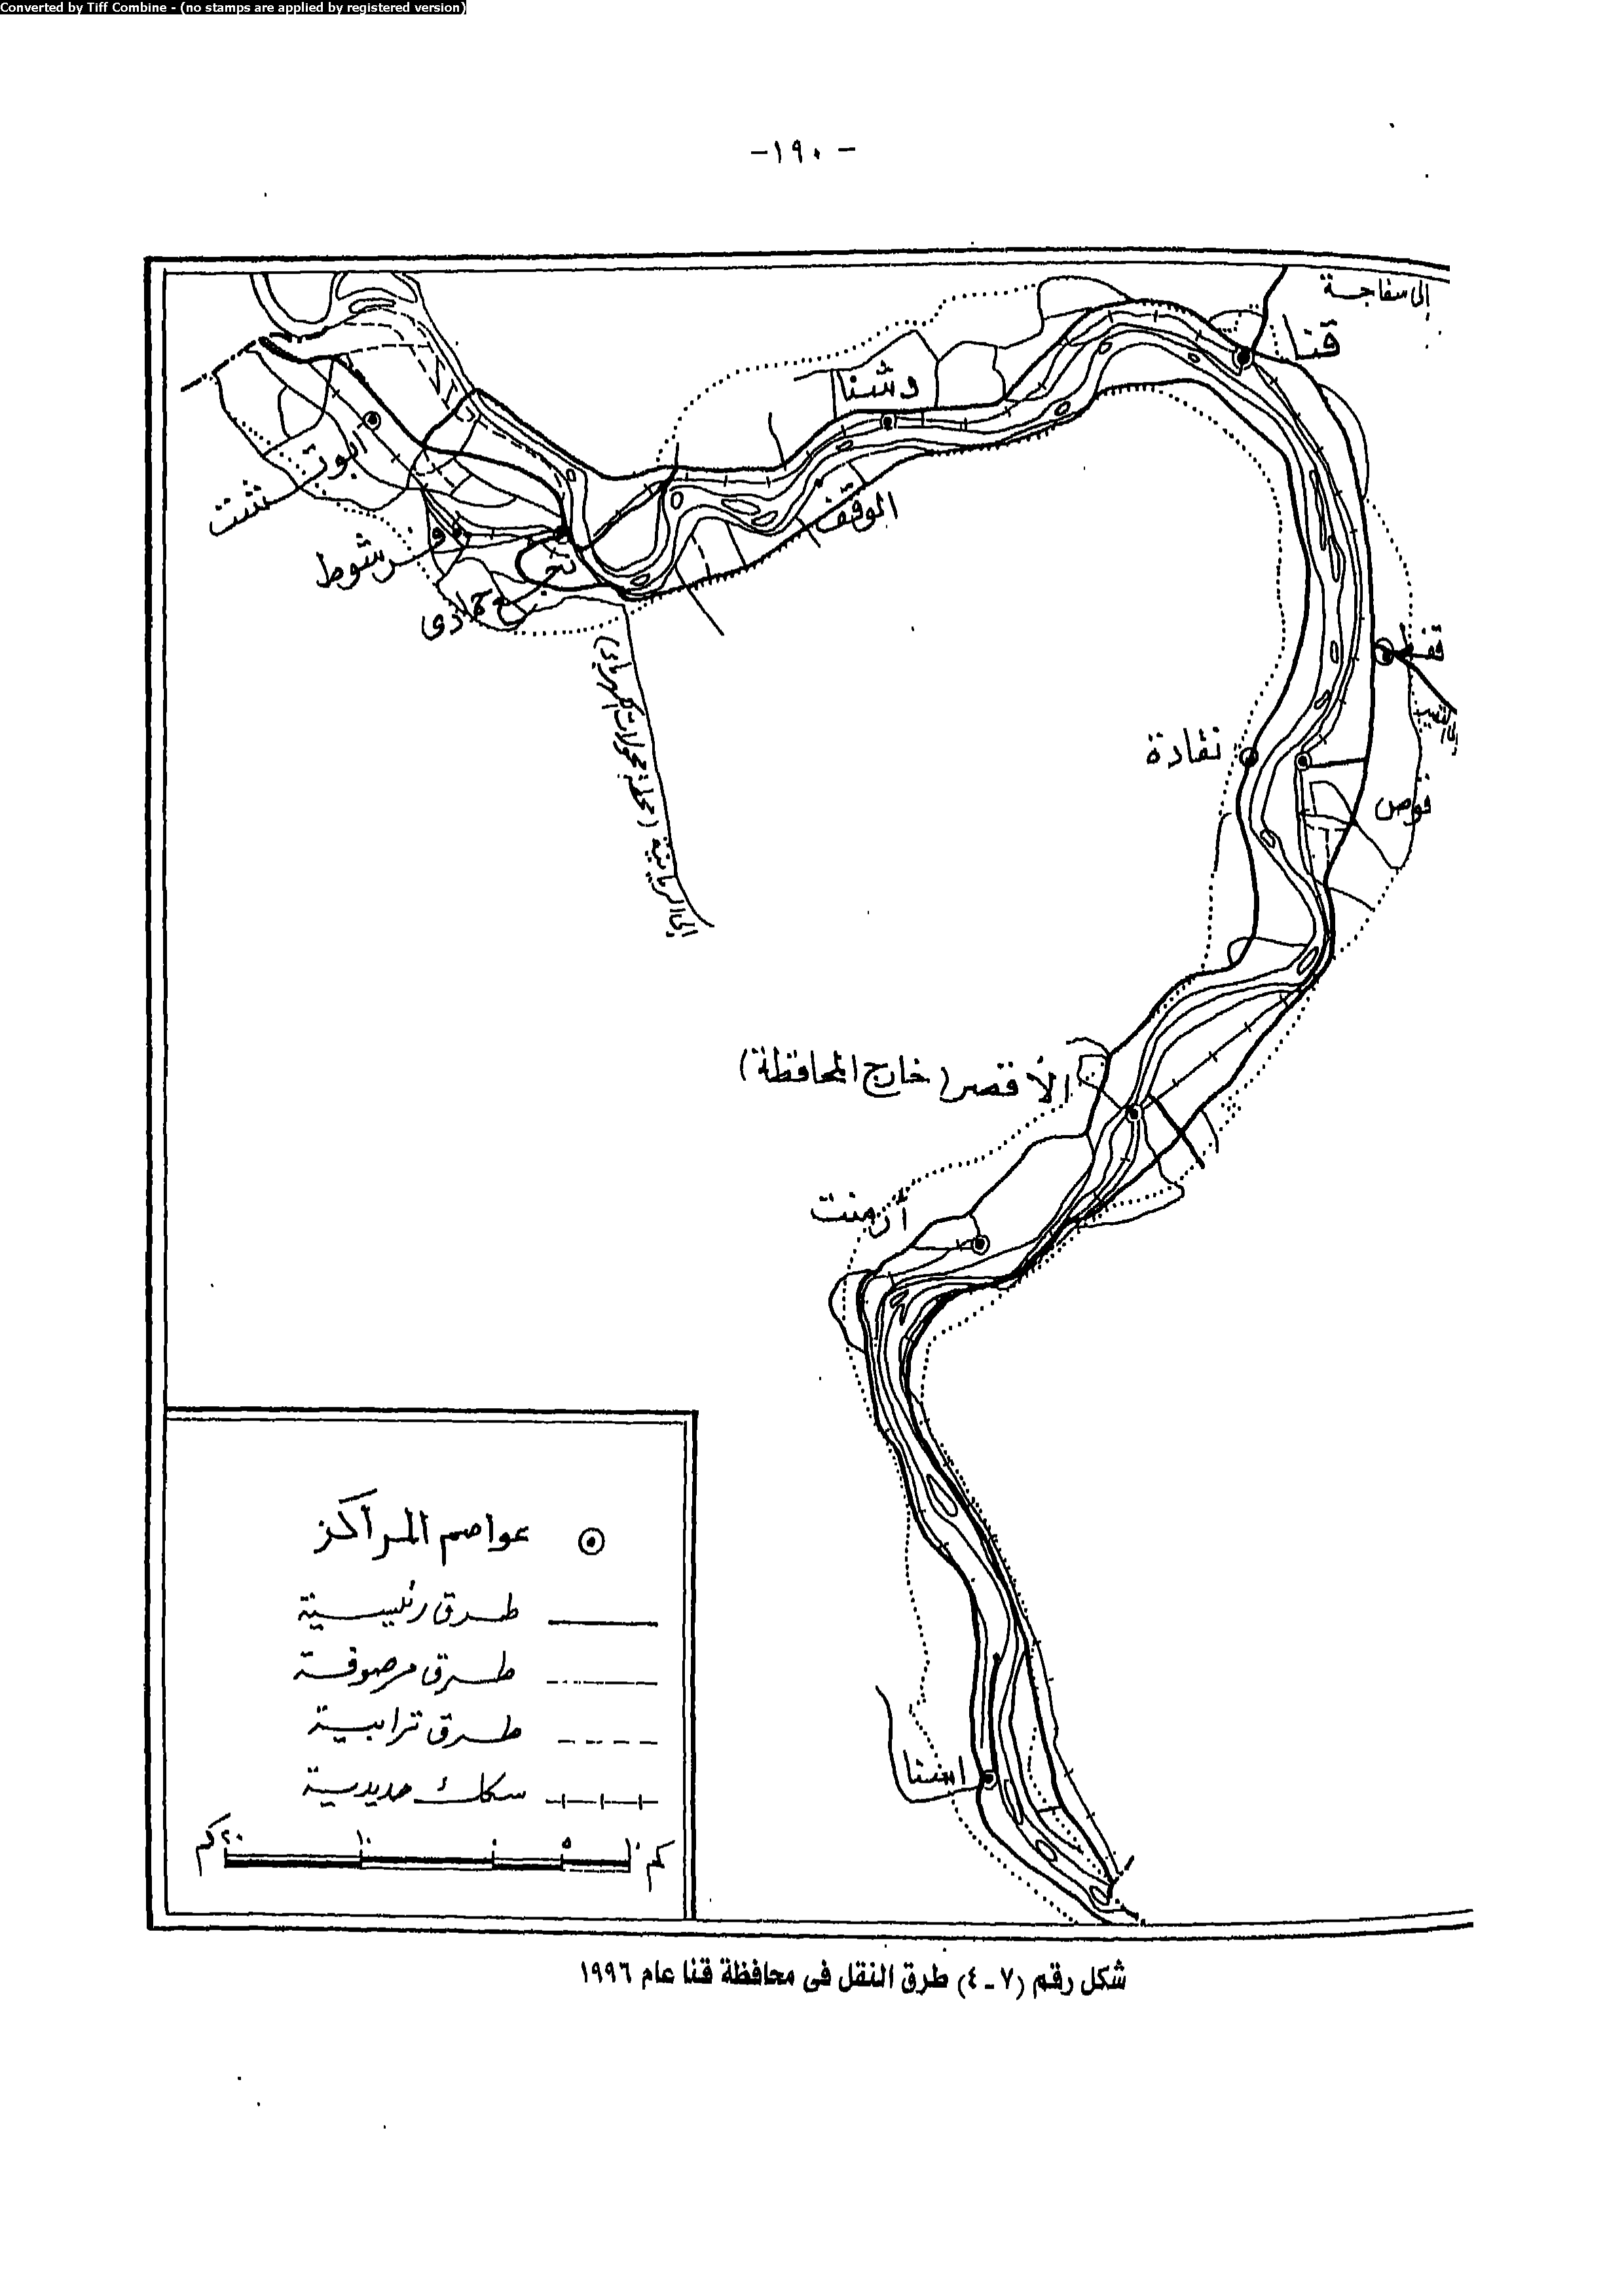 Converted by Tiff Combine - (no stamps are applied by registered version)
-١٩٠-
إلى سفاجة
قنا
دشنا
الوقف
ابوتشت
فرشوط
نجع حمادى
قفط
نقادة
قوص
الأقصر (خارج المحافظة)
أرمنت
اسنا
عواصم المراكز
طرق رئيسية
طرق مرصوفة
طرق ترابية
سكك حديدية
كم ١٠ ٥ ٠ ١٠ ٢٠ كم
شكل رقم (٧-٤) طرق النقل فى محافظة قنا عام ١٩٩٦